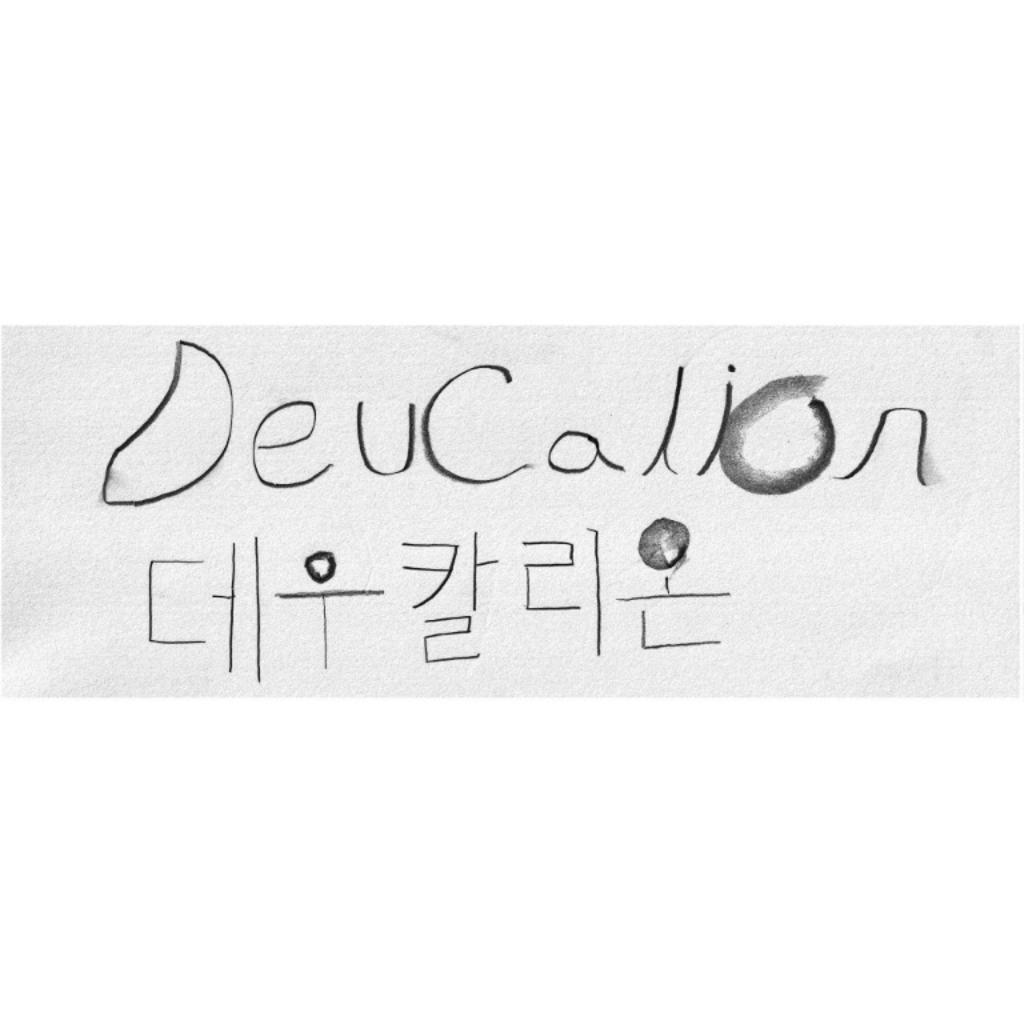 DeuCalion
데우칼리온